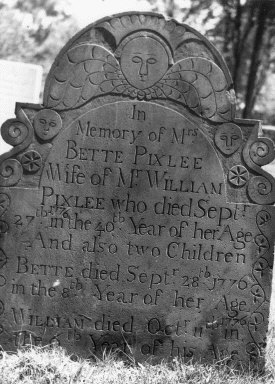 In
Memory of Mrs
BETTE PIXLEE
Wife of Mr WILLIAM
PIXLEE who died Septr
27th 1776 in the 40th Year of her Age
And also two Children
BETTE died Septr 28th 1776
in the 8th Year of her Age
WILLIAM died Octr 11th 1776 in
the Year of his Age